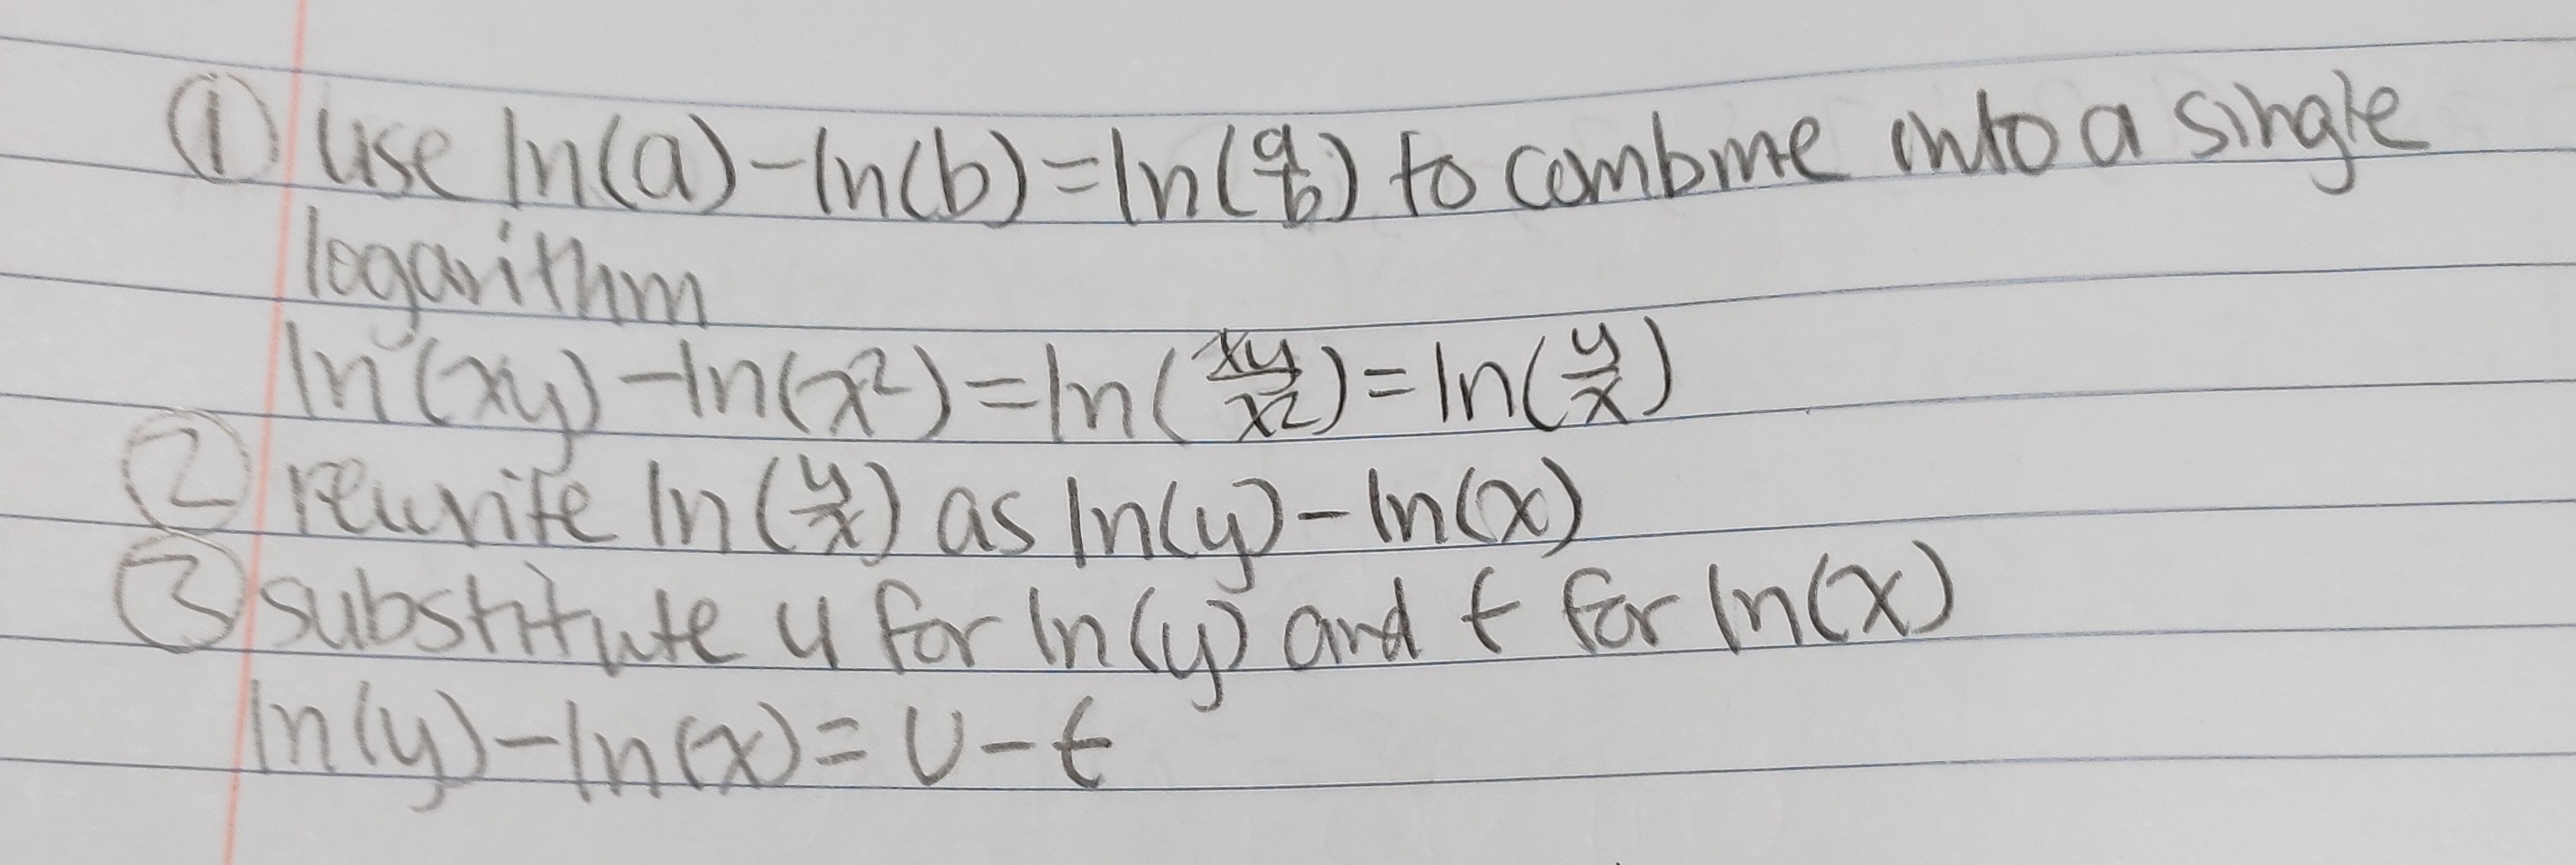 ① Use ln(a)-ln(b)=ln(a/b) to combine into a single
logarithm
ln(xy)-ln(x²)=ln(xy/x²)=ln(y/x)
② rewrite ln(y/x) as ln(y)-ln(x)
③ substitute u for ln(y) and t for ln(x)
ln(y)-ln(x)=u-t